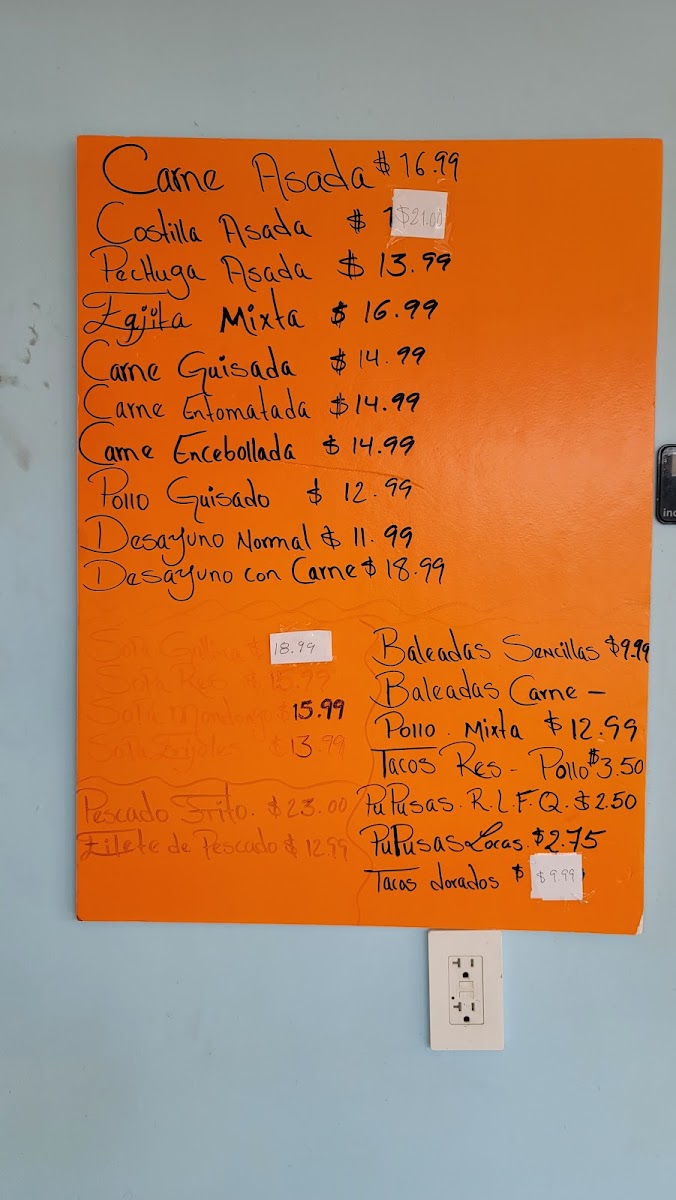 Carne Asada $ 16.99
Costilla Asada $ 1 $21.00
Pechuga Asada $ 13.99
Fajita Mixta $ 16.99
Carne Guisada $ 14.99
Carne Entomatada $14.99
Carne Encebollada $ 14.99
Pollo Guisado $ 12.99
Desayuno Normal $ 11.99
Desayuno con Carne $ 18.99
Sopa Gallina $ 18.99
Sopa Res $ 15.99
Sopa Mondongo $ 15.99
Sopa Frijoles $ 13.99
Pescado Frito. $ 23.00
Filete de Pescado $ 12.99
Baleadas Sencillas $9.99
Baleadas Carne -
Pollo. Mixta $ 12.99
Tacos Res - Pollo $3.50
PuPusas. R.L.F.Q. $ 2.50
PuPusas Locas. $2.75
Tacos dorados $ $9.99